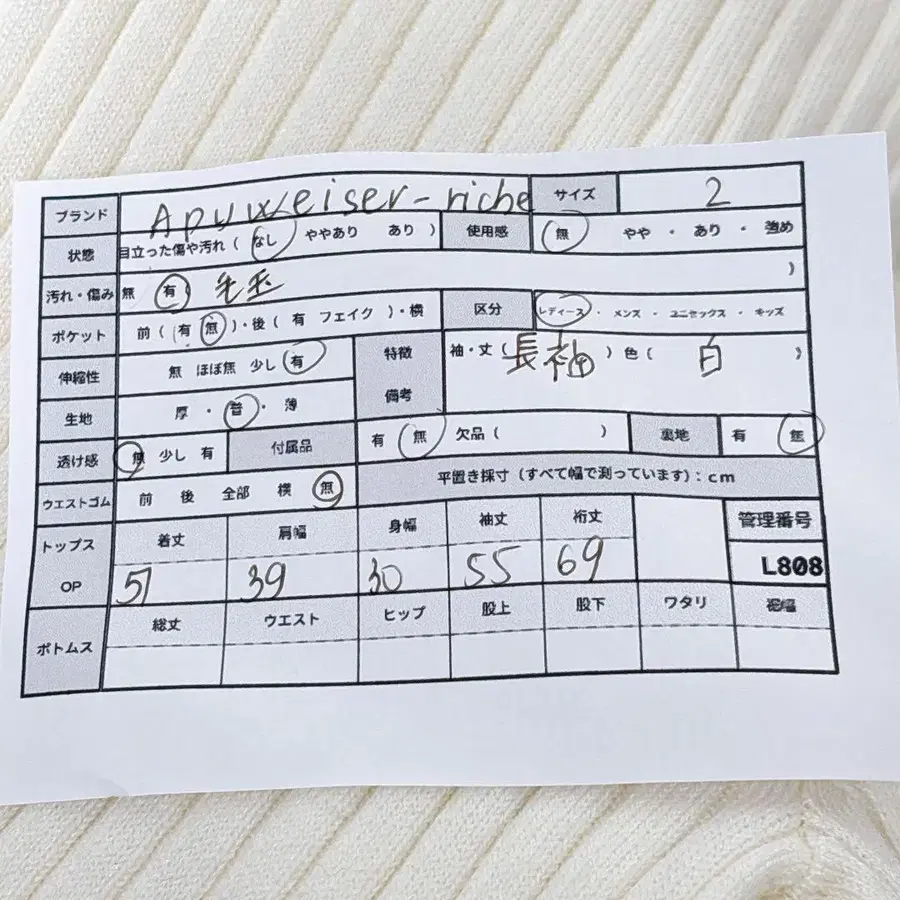 ブランド Apuweiser-riche サイズ 2
状態 目立った傷や汚れ ( なし ややあり あり ) 使用感 無 やや ・ あり ・ 強め
汚れ・傷み 無 有 毛玉 )
ポケット 前 ( 有 無 )・後 ( 有 フェイク )・横 区分 レディース ・ メンズ ・ ユニセックス ・ キッズ
伸縮性 無 ほぼ無 少し 有 特徴 備考 袖・丈 ( 長袖 ) 色 ( 白 )
生地 厚 ・ 普 ・ 薄
透け感 無 少し 有 付属品 有 無 欠品 ( ) 裏地 有 無
ウエストゴム 前 後 全部 横 無 平置き採寸 (すべて幅で測っています) : cm
トップス OP 着丈 肩幅 身幅 袖丈 裄丈 管理番号
51 39 30 55 69 L808
ボトムス 総丈 ウエスト ヒップ 股上 股下 ワタリ 裾幅